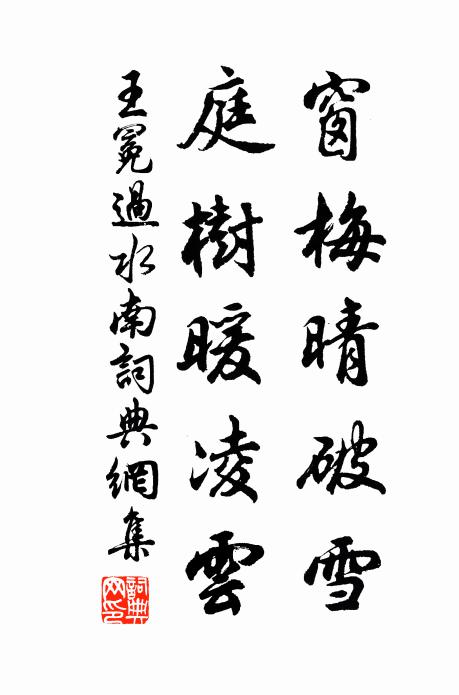 窗梅晴破雪
庭樹暖凌雲
王冕過水南詞典網集
詞典網印